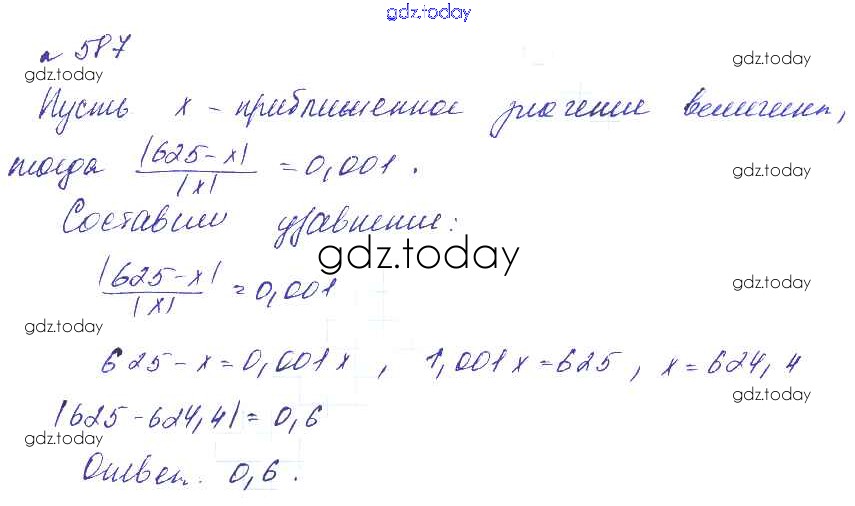 gdz.today
№ 587
gdz.today gdz.today
Пусть x – приближенное значение величины,
тогда |625-x| / |x| = 0,001.
gdz.today
Составим уравнение:
gdz.today
|625-x| / |x| = 0,001
gdz.today
gdz.today
625-x=0,001x, 1,001x=625, x=624,4
gdz.today
|625-624,4|=0,6
gdz.today
Ответ. 0,6.